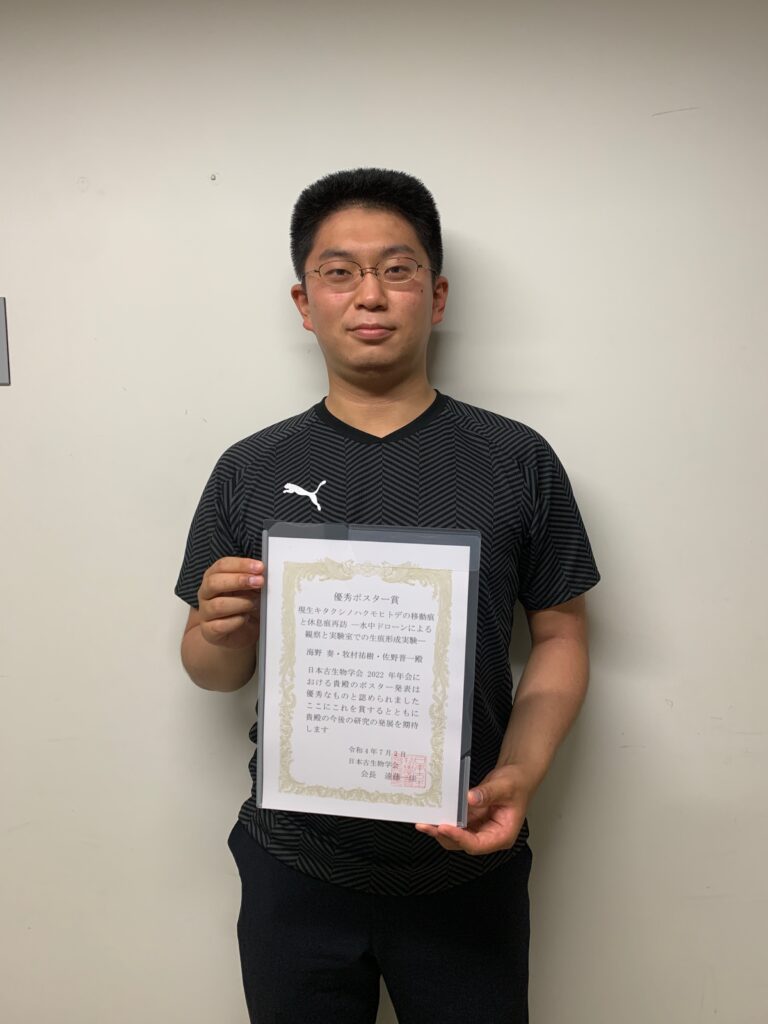 優秀ポスター賞
現生キタクシノハクモヒトデの移動痕
と休息痕再訪 ―水中ドローンによる
観察と実験室での生痕形成実験―
海野 奏・牧村祐樹・佐野晋一殿
日本古生物学会 2022 年年会に
おける貴殿のポスター発表は
優秀なものと認められました
ここにこれを賞するとともに
貴殿の今後の研究の発展を期待
します
令和4年7月2日
日本古生物学会
会長 遠藤一佳